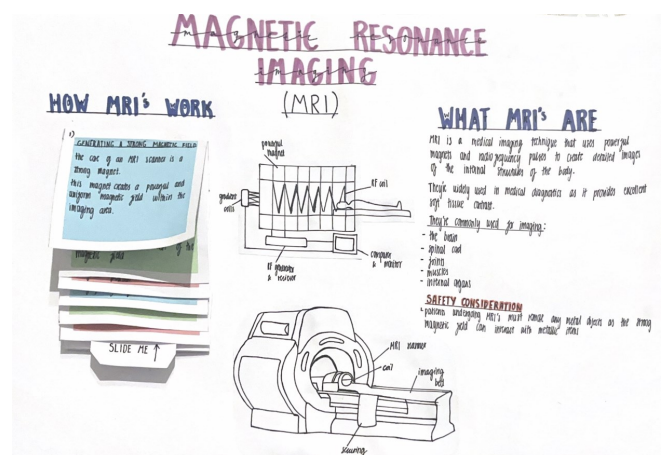 MAGNETIC RESONANCE
IMAGING
(MRI)
HOW MRI's WORK
1)
GENERATING A STRONG MAGNETIC FIELD
the core of an MRI scanner is a
strong magnet.
this magnet creates a powerful and
uniform magnetic field within the
imaging area.
of the
magnetic field
SLIDE ME ↑
powerful
magnet
RF coil
gradient
coils
RF generator
& receiver
computer
& monitor
MRI scanner
coil
imaging
bed
WHAT MRI's ARE
MRI is a medical imaging technique that uses powerful
magnets and radiofrequency pulses to create detailed images
of the internal structures of the body.
They're widely used in medical diagnostics as it provides excellent
soft tissue contrast.
They're commonly used for imaging:
- the brain
- spinal cord
- joints
- muscles
- internal organs
SAFETY CONSIDERATION
patients undergoing MRI's must remove any metal objects as the strong
magnetic field can interact with metallic items